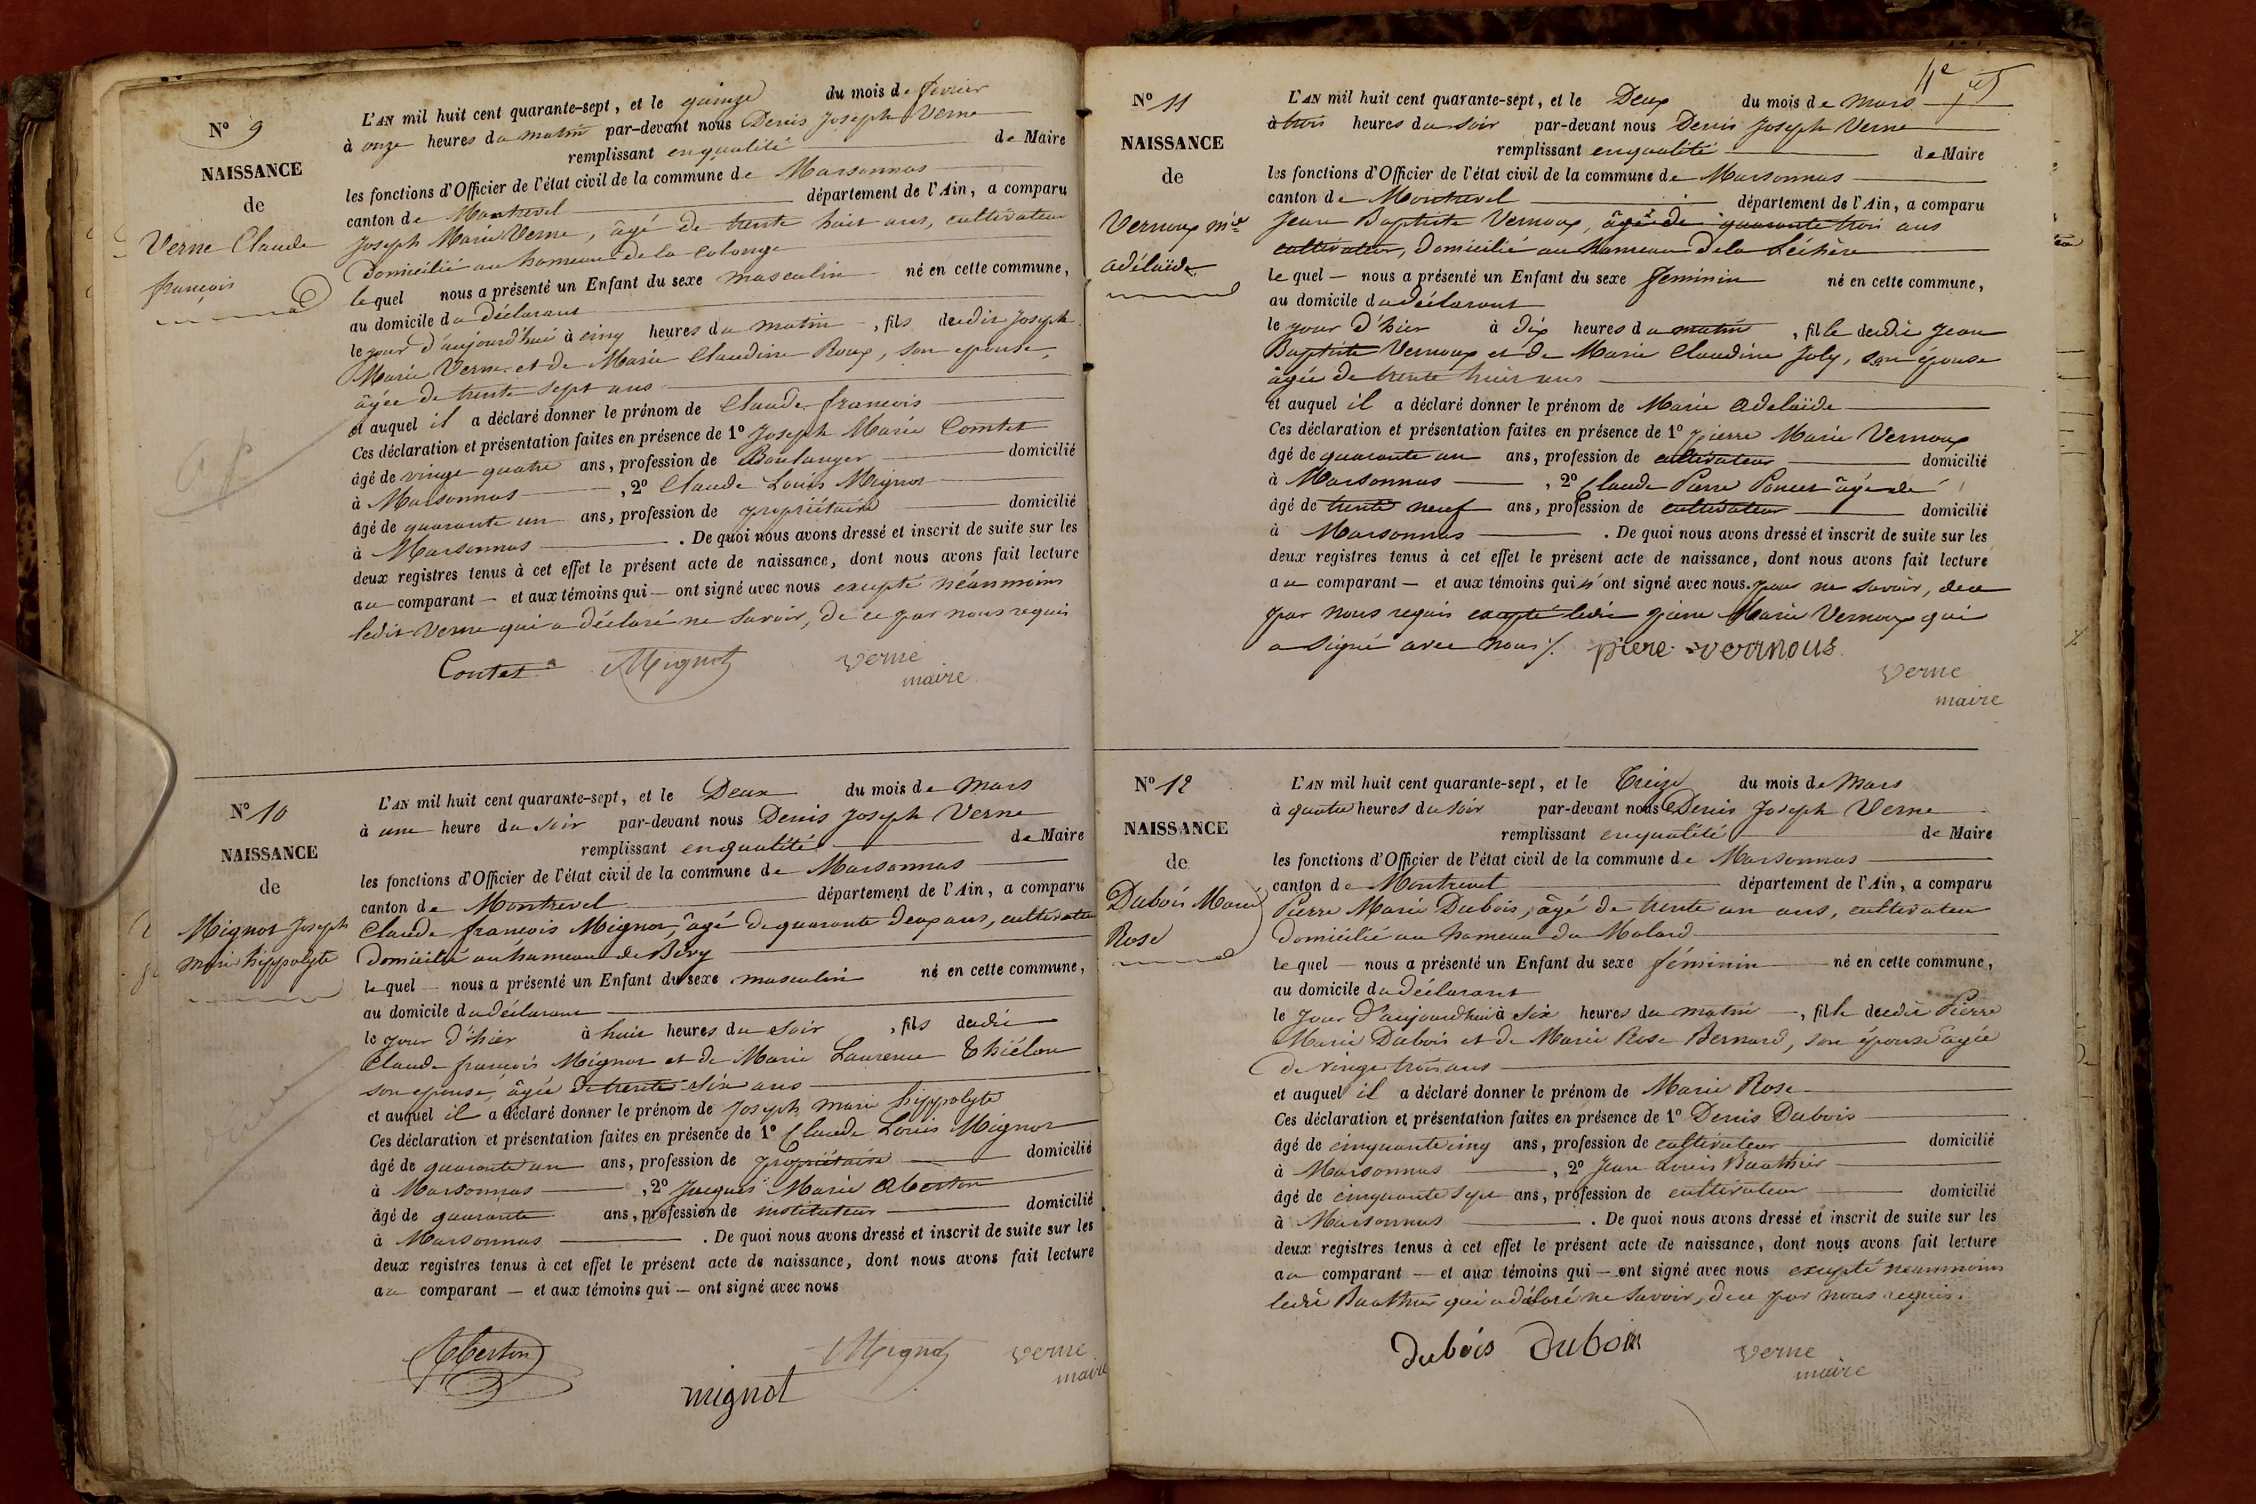 N° 9
NAISSANCE
de
Verne Claude
françois
L'AN mil huit cent quarante-sept, et le quinze du mois de fevrier
à onze heures du matin par-devant nous Denis Joseph Verne
remplissant en qualité de Maire
les fonctions d'Officier de l'état civil de la commune de Marsonnas
canton de Montrevel département de l'Ain, a comparu
Joseph Marie Verne, âgé de trente huit ans, cultivateur
Domicilié au hameau de la Colonge
lequel nous a présenté un Enfant du sexe masculin né en cette commune,
au domicile du déclarant
le jour d'aujourd'hui à cinq heures du matin, fils dudit Joseph
Marie Verne et de Marie Claudine Roux, son epouse,
âgée de trente sept ans
et auquel il a déclaré donner le prénom de Claude françois
Ces déclaration et présentation faites en présence de 1° Joseph Marie Contet
âgé de vingt quatre ans, profession de Boulanger domicilié
à Marsonnas, 2° Claude Louis Mignot
âgé de quarante un ans, profession de propriétaire domicilié
à Marsonnas. De quoi nous avons dressé et inscrit de suite sur les
deux registres tenus à cet effet le présent acte de naissance, dont nous avons fait lecture
au comparant — et aux témoins qui — ont signé avec nous excepté néanmoins
ledit Verne qui a déclaré ne savoir, de ce par nous requis
Contet Mignot Verne
maire
N° 10
NAISSANCE
de
Mignot Joseph
Marie hippolyte
L'AN mil huit cent quarante-sept, et le Deux du mois de Mars
à une heure du soir par-devant nous Denis Joseph Verne
remplissant en qualité de Maire
les fonctions d'Officier de l'état civil de la commune de Marsonnas
canton de Montrevel département de l'Ain, a comparu
Claude françois Mignot, âgé de quarante deux ans, cultivateur
Domicilié au hameau de Béry
lequel — nous a présenté un Enfant du sexe masculin né en cette commune,
au domicile du déclarant
le jour d'hier à huit heures du soir, fils dudit
Claude françois Mignot et de Marie Laurence
son epouse, âgée de trente six ans
et auquel il a déclaré donner le prénom de Joseph marie hippolyte
Ces déclaration et présentation faites en présence de 1° Claude Louis Mignot
âgé de quarante un ans, profession de propriétaire domicilié
à Marsonnas, 2° Jacques Marie Aberton
âgé de quarante ans, profession de instituteur domicilié
à Marsonnas. De quoi nous avons dressé et inscrit de suite sur les
deux registres tenus à cet effet le présent acte de naissance, dont nous avons fait lecture
au comparant — et aux témoins qui — ont signé avec nous
Aberton mignot Mignot Verne
maire
N° 11
NAISSANCE
de
Vernoux Mie
adélaïde
L'AN mil huit cent quarante-sept, et le Deux du mois de Mars
à trois heures du soir par-devant nous Denis Joseph Verne
remplissant en qualité de Maire
les fonctions d'Officier de l'état civil de la commune de Marsonnas
canton de Montrevel département de l'Ain, a comparu
Jean Baptiste Vernoux, âgé de quarante trois ans
cultivateur, domicilié au hameau de la Léchère
lequel — nous a présenté un Enfant du sexe féminin né en cette commune,
au domicile du déclarant
le jour d'hier à dix heures du matin, fille dudit Jean
Baptiste Vernoux et de Marie Claudine Joly, son épouse
âgée de trente huit ans
et auquel il a déclaré donner le prénom de Marie Adelaïde
Ces déclaration et présentation faites en présence de 1° pierre Marie Vernoux
âgé de quarante un ans, profession de cultivateur domicilié
à Marsonnas, 2° Claude Pierre Poncet âgé de
âgé de trente neuf ans, profession de cultivateur domicilié
à Marsonnas. De quoi nous avons dressé et inscrit de suite sur les
deux registres tenus à cet effet le présent acte de naissance, dont nous avons fait lecture
au comparant — et aux témoins qui n'ont signé avec nous. pour ne savoir, de ce
par nous requis excepté ledit pierre Marie Vernoux qui
a signé avec nous /. piere vernous
Verne
maire
N° 12
NAISSANCE
de
Dubois Marie
Rose
L'AN mil huit cent quarante-sept, et le Treize du mois de Mars
à quatre heures du soir par-devant nous Denis Joseph Verne
remplissant en qualité de Maire
les fonctions d'Officier de l'état civil de la commune de Marsonnas
canton de Montrevel département de l'Ain, a comparu
Pierre Marie Dubois, âgé de trente un ans, cultivateur
domicilié au hameau du Molard
lequel — nous a présenté un Enfant du sexe féminin né en cette commune,
au domicile du déclarant
le Jour d'aujourdhui à six heures du matin —, fille dudit Pierre
Marie Dubois et de Marie Rose Bernard, son épouse âgée
de vingt trois ans
et auquel il a déclaré donner le prénom de Marie Rose
Ces déclaration et présentation faites en présence de 1° Denis Dubois
âgé de cinquante cinq ans, profession de cultivateur domicilié
à Marsonnas, 2° Jean Louis Baathier
âgé de cinquante sept ans, profession de cultivateur domicilié
à Marsonnas. De quoi nous avons dressé et inscrit de suite sur les
deux registres tenus à cet effet le présent acte de naissance, dont nous avons fait lecture
au comparant — et aux témoins qui — ont signé avec nous excepté néanmoins
ledit Baathier qui a déclaré ne savoir, de ce par nous requis.
dubois Dubois Verne
maire